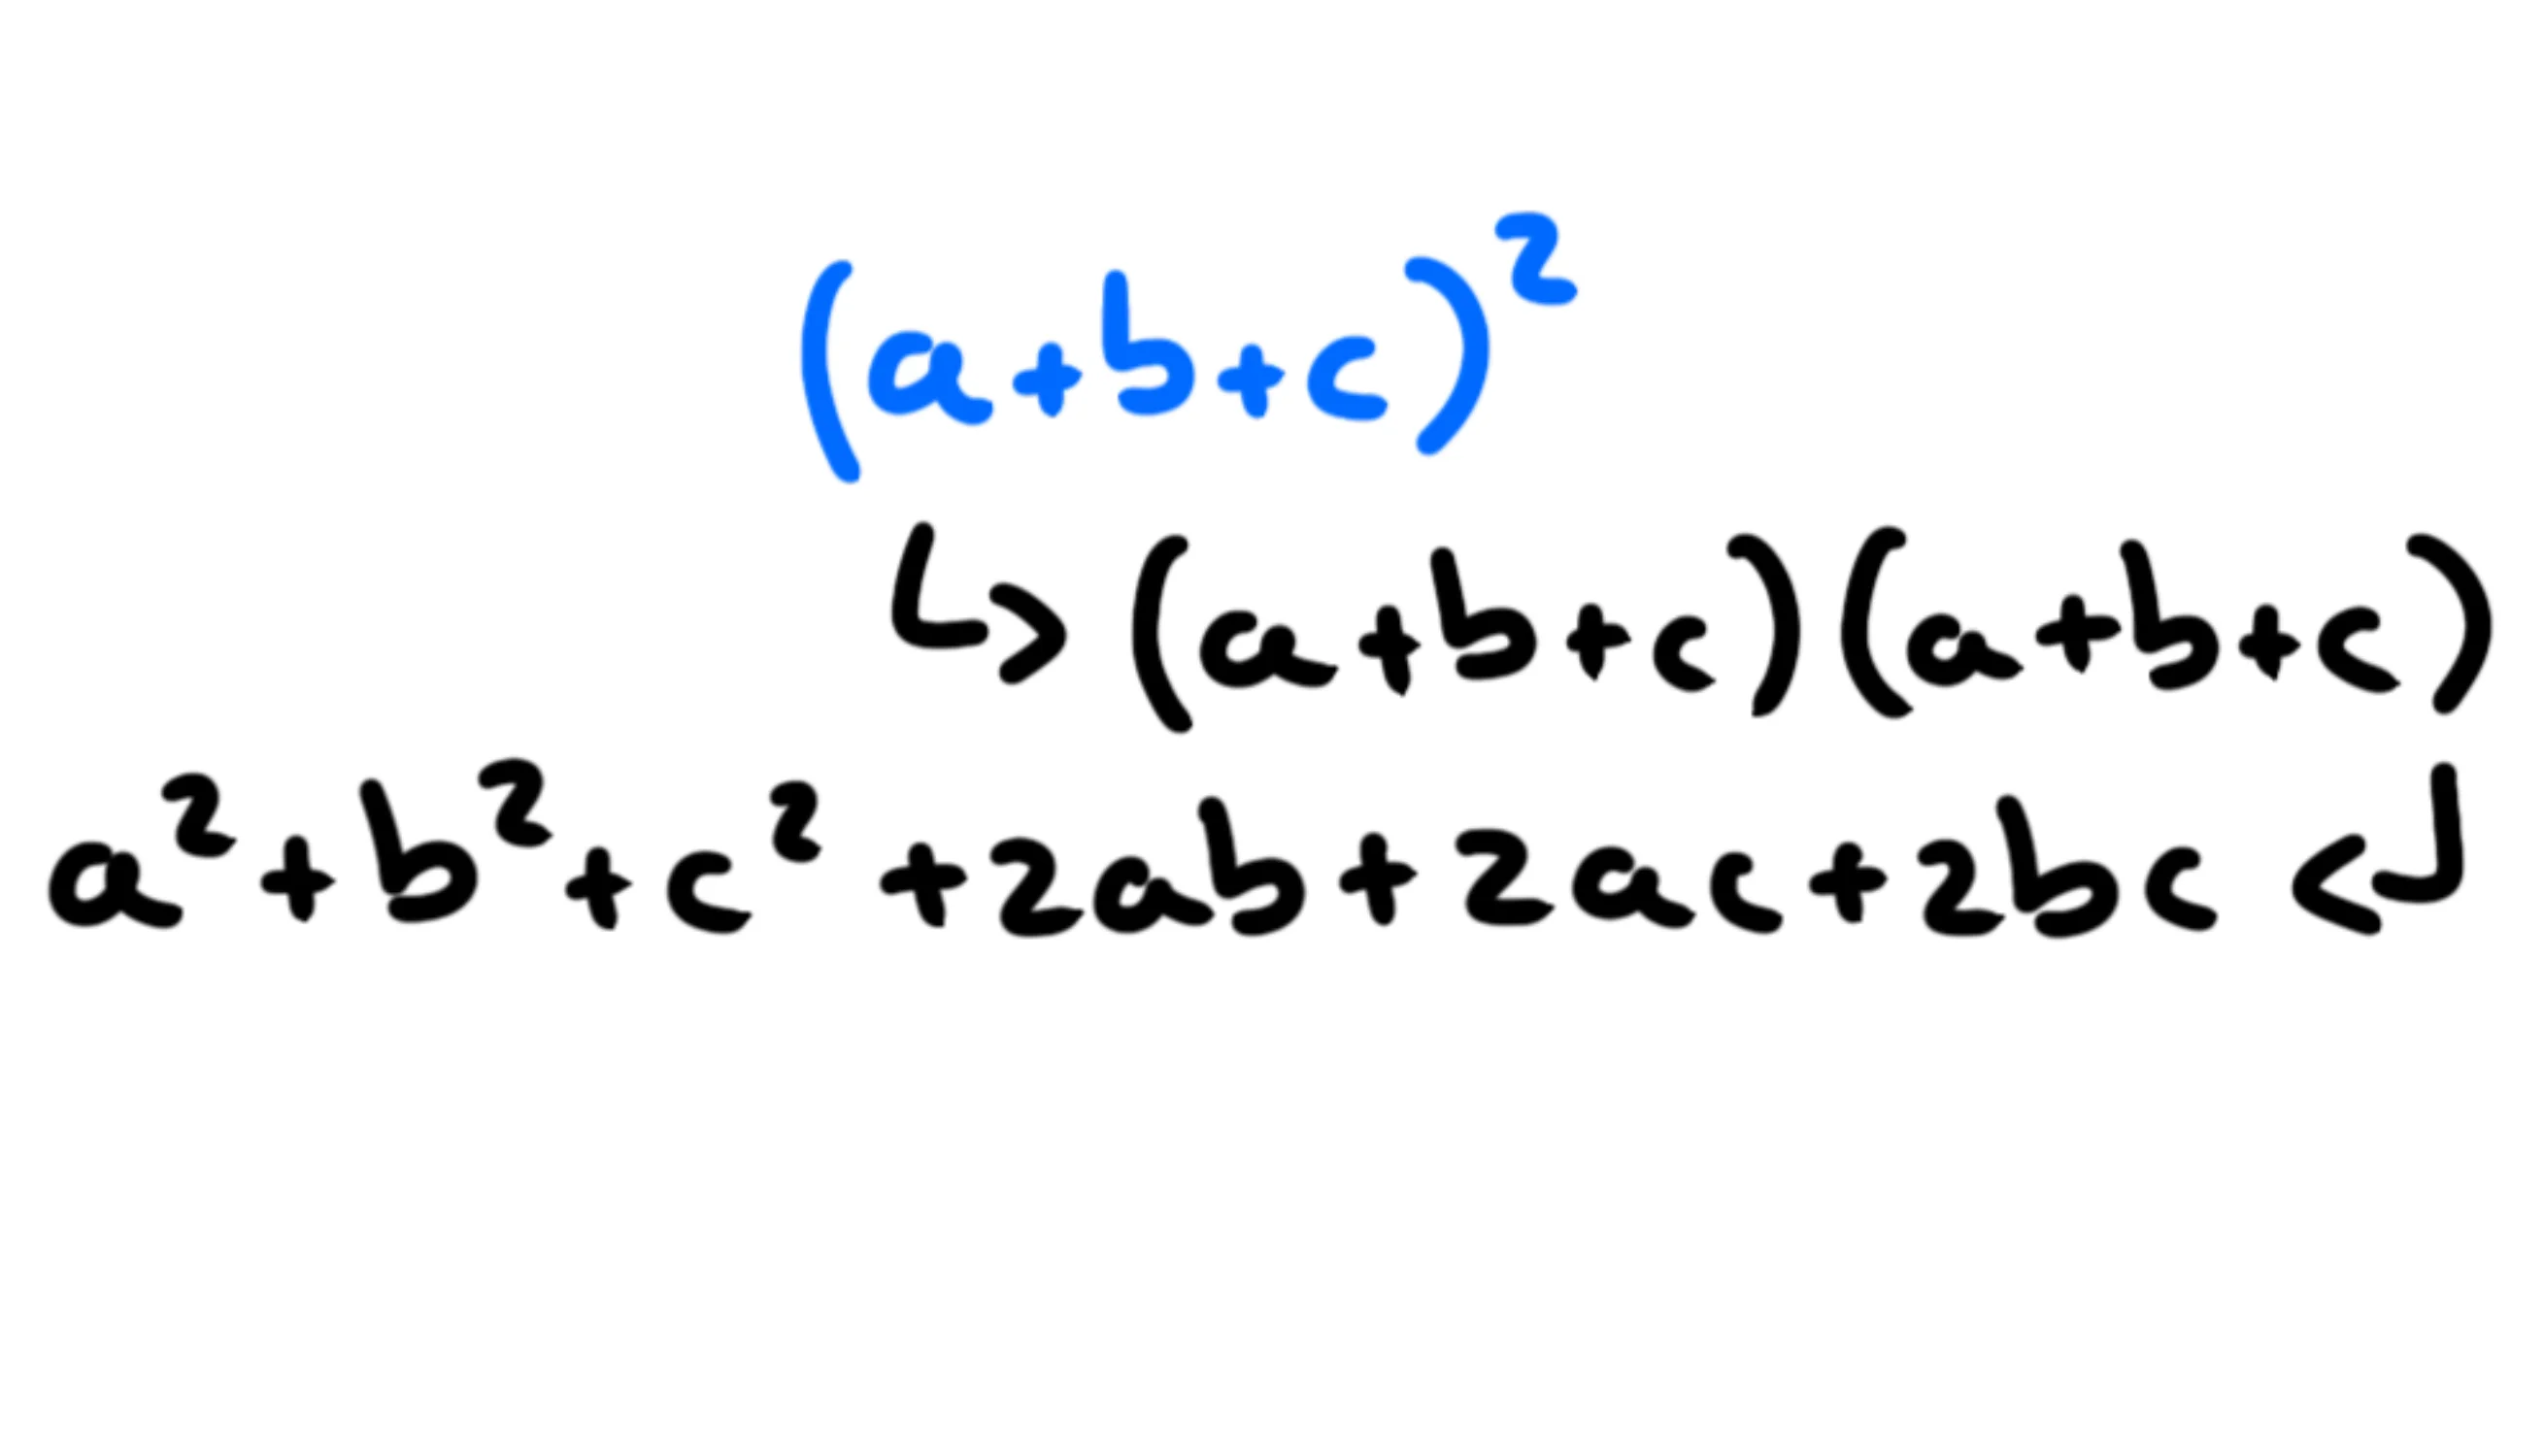 (a+b+c)²
↳ (a+b+c)(a+b+c)
a²+b²+c²+2ab+2ac+2bc ↲